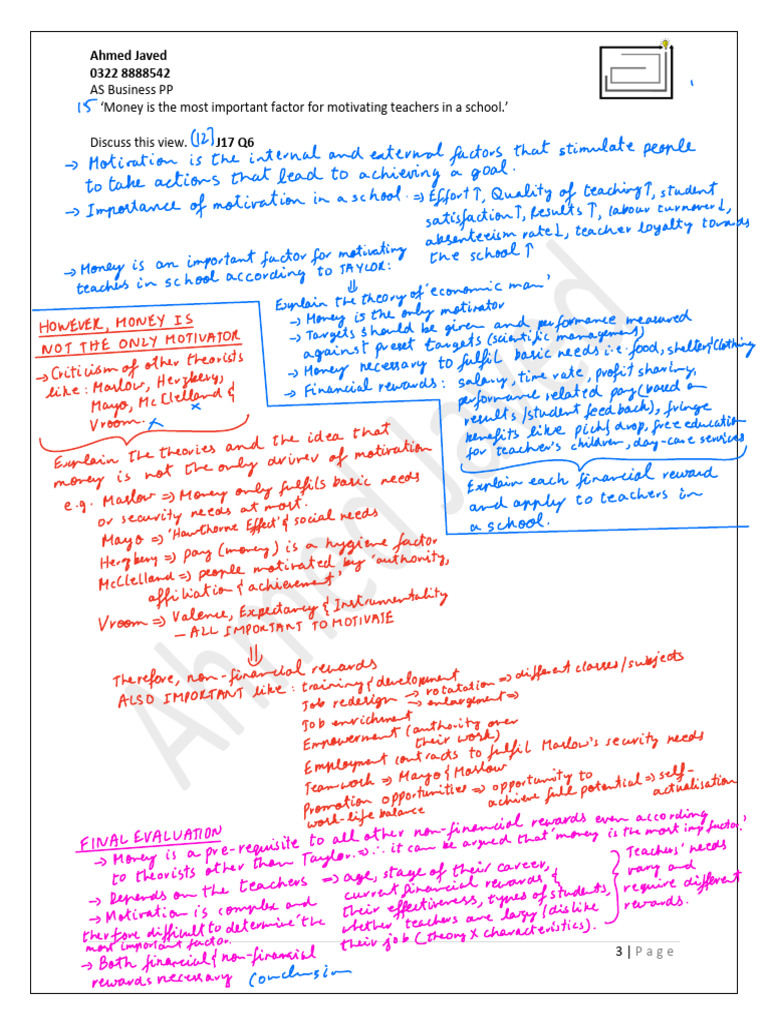 Ahmed Javed
0322 8888542
AS Business PP
15 ‘Money is the most important factor for motivating teachers in a school.’
Discuss this view. [12] J17 Q6
→ Motivation is the internal and external factors that stimulate people
to take actions that lead to achieving a goal.
→ Importance of motivation in a school. ⇒ Effort↑, Quality of teaching↑, student
satisfaction↑, Results↑, labour turnover↓,
absenteeism rate↓, teacher loyalty towards
the school↑
→ Money is an important factor for motivating
teachers in school according to TAYLOR:
⇓
Explain the theory of 'economic man'
→ Money is the only motivator
→ Targets should be given and performance measured
against preset targets (scientific management)
→ Money necessary to fulfil basic needs i.e. food, shelter, clothing
→ Financial rewards: salary, time rate, profit sharing,
performance related pay (based on
results/student feedback), fringe
benefits like pick & drop, free education
for teacher's children, day-care services
Explain each financial reward
and apply to teachers in
a school.
HOWEVER, MONEY IS
NOT THE ONLY MOTIVATOR
→ Criticism of other theorists
like: Maslow, Herzberg,
Mayo, McClelland &
x
Vroom. x
Explain the theories and the idea that
money is not the only driver of motivation
e.g. Maslow ⇒ Money only fulfils basic needs
or security needs at most.
Mayo ⇒ 'Hawthorne Effect' & social needs
Herzberg ⇒ pay (money) is a hygiene factor
McClelland ⇒ people motivated by 'authority,
affiliation & achievement'
Vroom ⇒ Valence, Expectancy & Instrumentality
— ALL IMPORTANT TO MOTIVATE
⇓
Therefore, non-financial rewards
ALSO IMPORTANT like: training & development
Job redesign → rotatation ⇒ different classes/subjects
→ enlargement ⇒
Job enrichment
Empowerment (authority over
their work)
Employment contracts to fulfil Maslow's security needs
Teamwork ⇒ Mayo & Maslow
Promotion opportunities ⇒ opportunity to
achieve full potential ⇒ self-
actualisation
work-life balance
FINAL EVALUATION
→ Money is a pre-requisite to all other non-financial rewards even according
to theorists other than Taylor. ⇒ ∴ it can be argued that 'money is the most imp factor.'
→ Depends on the teachers ⇒ age, stage of their career,
current financial rewards &
their effectiveness, types of students,
whether teachers are lazy / dislike
their job (theory X characteristics).
Teachers' needs
vary and
require different
rewards.
→ Motivation is complex and
therefore difficult to determine 'the
most important factor.'
→ Both financial & non-financial
rewards necessary Conclusion
3 | Page
Ahmed Javed